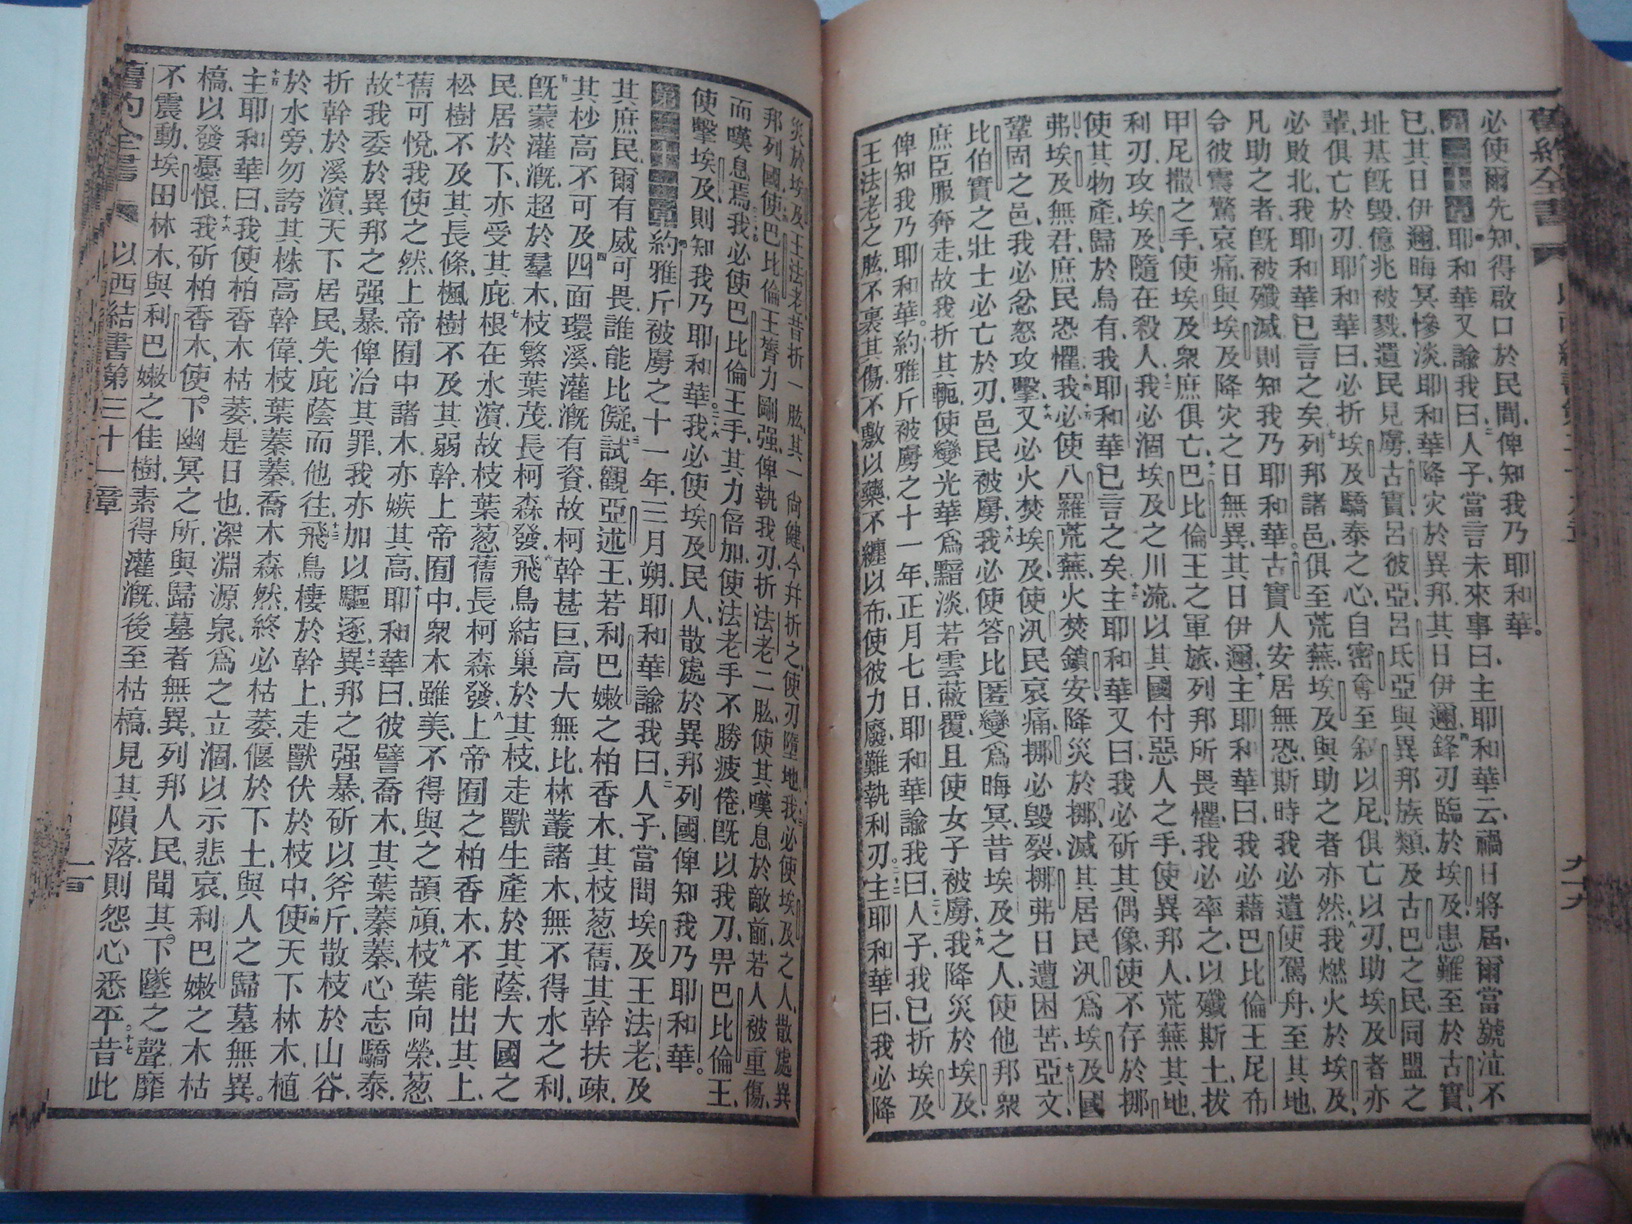 必使爾先知、得啟口於民間、俾知我乃耶和華。
第三十章 耶和華又諭我曰、人子、當言未來事曰、主耶和華云、禍日將屆、爾當號泣不
已、其日伊邇、晦冥慘淡、耶和華降灾於異邦、其日伊邇、鋒刃臨於埃及、患難至於古實、
址基旣毀、億兆被戮、遺民見虜、古實呂彼亞呂氏亞與異邦族類、及古巴之民、同盟之
輩、俱亡於刃、耶和華曰、必折埃及驕泰之心、自密奪至敘以尼、俱亡以刃、助埃及者、亦
必敗北、我耶和華已言之矣、列邦諸邑、俱至荒蕪、埃及與助之者亦然、我燃火於埃及、
凡助之者旣被殲滅、則知我乃耶和華、古實人安居無恐、斯時我必遣使駕舟、至其地、
令彼震驚哀痛、與埃及降灾之日無異、其日伊邇、主耶和華曰、我必藉巴比倫王尼布
甲尼撒之手、使埃及衆庶俱亡、巴比倫王之軍旅、列邦所畏懼、我必率之以殲斯土、拔
利刃、攻埃及、隨在殺人、我必涸埃及之川流、以其國付惡人之手、使異邦人荒蕪其地、
使其物產歸於烏有、我耶和華已言之矣、主耶和華又曰、我必斫其偶像、使不存於挪
弗、埃及無君、庶民恐懼、我必使八羅荒蕪、火焚鎖安、降災於挪、滅其居民、汛為埃及國
鞏固之邑、我必忿怒攻擊、又必火焚埃及、使汛民哀痛、挪必毀裂、挪弗日遭困苦、亞文
比伯實之壯士必亡於刃、邑民被虜、我必使答比匿變為晦冥、昔埃及之人、使他邦衆
庶臣服奔走、故我折其軛、使變光華為黯淡、若雲蔽覆、且使女子被虜、我降災於埃及、
俾知我乃耶和華。約雅斤被虜之十一年正月七日、耶和華諭我曰、人子、我已折埃及
王法老之肱、不裹其傷、不敷以藥、不纏以布、使彼力廢、難執利刃、主耶和華曰、我必降
災於埃及王法老、昔折一肱、其一尚健、今幷折之、使刃墮地、我必使埃及之人、散處異
邦列國、使巴比倫王膂力剛强、俾執我刃、折法老二肱、使其嘆息於敵前、若人被重傷、
而嘆息焉、我必使巴比倫王手、其力倍加、使法老手不勝疲倦、旣以我刀畀巴比倫王、
使擊埃及、則知我乃耶和華。我必使埃及民人、散處於異邦列國、俾知我乃耶和華。
第三十一章 約雅斤被虜之十一年三月朔、耶和華諭我曰、人子、當問埃及王法老、及
其庶民、爾有威可畏、誰能比儗、試觀亞述王、若利巴嫩之柏香木、其枝葱蒨、其幹扶疎、
其杪高不可及、四面環溪、灌漑有資、故柯幹甚巨、高大無比、林叢諸木、無不得水之利、
旣蒙灌漑、超於羣木、枝繁葉茂、長柯森發、飛鳥結巢於其枝、走獸生產於其蔭、大國之
民、居於下、亦受其庇、根在水濱、故枝葉葱蒨、長柯森發、上帝囿之柏香木、不能出其上、
松樹不及其長條、楓樹不及其弱幹、上帝囿中衆木雖美、不得與之頡頏、枝葉向榮、葱
蒨可悅、我使之然、上帝囿中諸木、亦嫉其高、耶和華曰、彼譬喬木、其葉蓁蓁、心志驕泰、
故我委於異邦之强暴、俾治其罪、我亦加以驅逐、異邦之强暴、斫以斧斤、散枝於山谷、
折幹於溪濱、天下居民、失庇蔭而他往、飛鳥棲於幹上、走獸伏於枝中、使天下林木、植
於水旁、勿誇其株高幹偉、枝葉蓁蓁、喬木森然、終必枯萎、偃於下土、與人之歸墓無異。
主耶和華曰、我使柏香木枯萎、是日也、深淵源泉、為之立涸、以示悲哀、利巴嫩之木枯
槁、以發憂恨、我斫柏香木、使下幽冥之所、與歸墓者無異、列邦人民聞其下墜之聲、靡
不震動、埃田林木、與利巴嫩之佳樹、素得灌漑、後至枯槁、見其隕落、則怨心悉平、昔此
舊約全書 以西結書第三十一章 一百